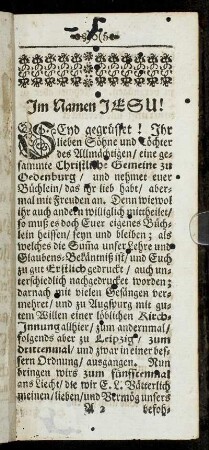 Im Namen JESU!
SEyd gegrüsset! Ihr
lieben Söhne und Töchter
des Allmächtigen/ eine ge-
sammte Christliche Gemeine zu
Oedenburg/ und nehmet euer
Büchlein/ das ihr lieb habt/ aber-
mal mit Freuden an. Denn wiewol
ihr auch andern williglich mittheilet/
so muß es doch Euer eigenes Büch-
lein heissen/ seyn und bleiben; als
welches die Sum̃a unser Lehre und
Glaubens-Bekänntniß ist/ und Euch
zu gut Erstlich gedruckt/ auch un-
terschiedlich nachgedrucket worden;
darnach mit vielen Gesängen ver-
mehret/ und zu Augspurg mit gu-
ten Willen einer löblichen Kirch-
Innung allhier/ zum andernmal/
folgends aber zu Leipzig/ zum
drittenmal/ und zwar in einer bes-
sern Ordnung/ ausgangen. Nun
bringen wirs zum fünfftenmal
ans Liecht/ die wir E. L. Vätterlich
meinen/ lieben/ und Vermög unsers
A 2 befoh-